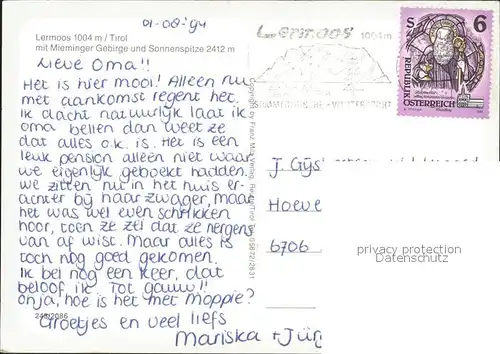 01-08-'94
Lermoos 1004 m / Tirol
mit Mieminger Gebirge und Sonnenspitze 2412 m
Lermoos
1004 m
S 6
REPUBLIK
ÖSTERREICH
SOMMERFRISCHE - WINTERSPORT
Lieve Oma!!
Het is hier mooi! Alleen nu
met aankomst regent het.
Ik dacht natuurlijk laat ik
oma bellen dan weet ze
dat alles o.k. is. Het is een
leuk pension alleen niet waar
we eigenlijk geboekt hadden.
we zitten nu in het huis er-
achter bij haar zwager, maar
het was wel even schrikken
hoor, toen ze zei dat ze nergens
van af wist. Maar alles is
toch nog goed gekomen.
Ik bel nog een keer, dat
beloof ik. Tot gauw!!
Onja, hoe is het met Moppie?
Groetjes en veel liefs
Mariska + Jür
243/2086
J. Gijs
Hoeve
6706
privacy protection
Datenschutz